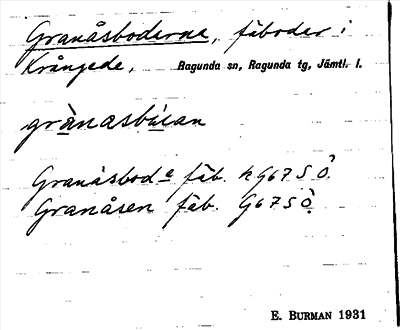 Granåsboderna, fäbodar i
Krångede, Ragunda sn, Ragunda tg, Jämtl. l.
Granåsbod fäb. G67 S Ö
Granåsen fäb. G67 S Ö
E. BURMAN 1931